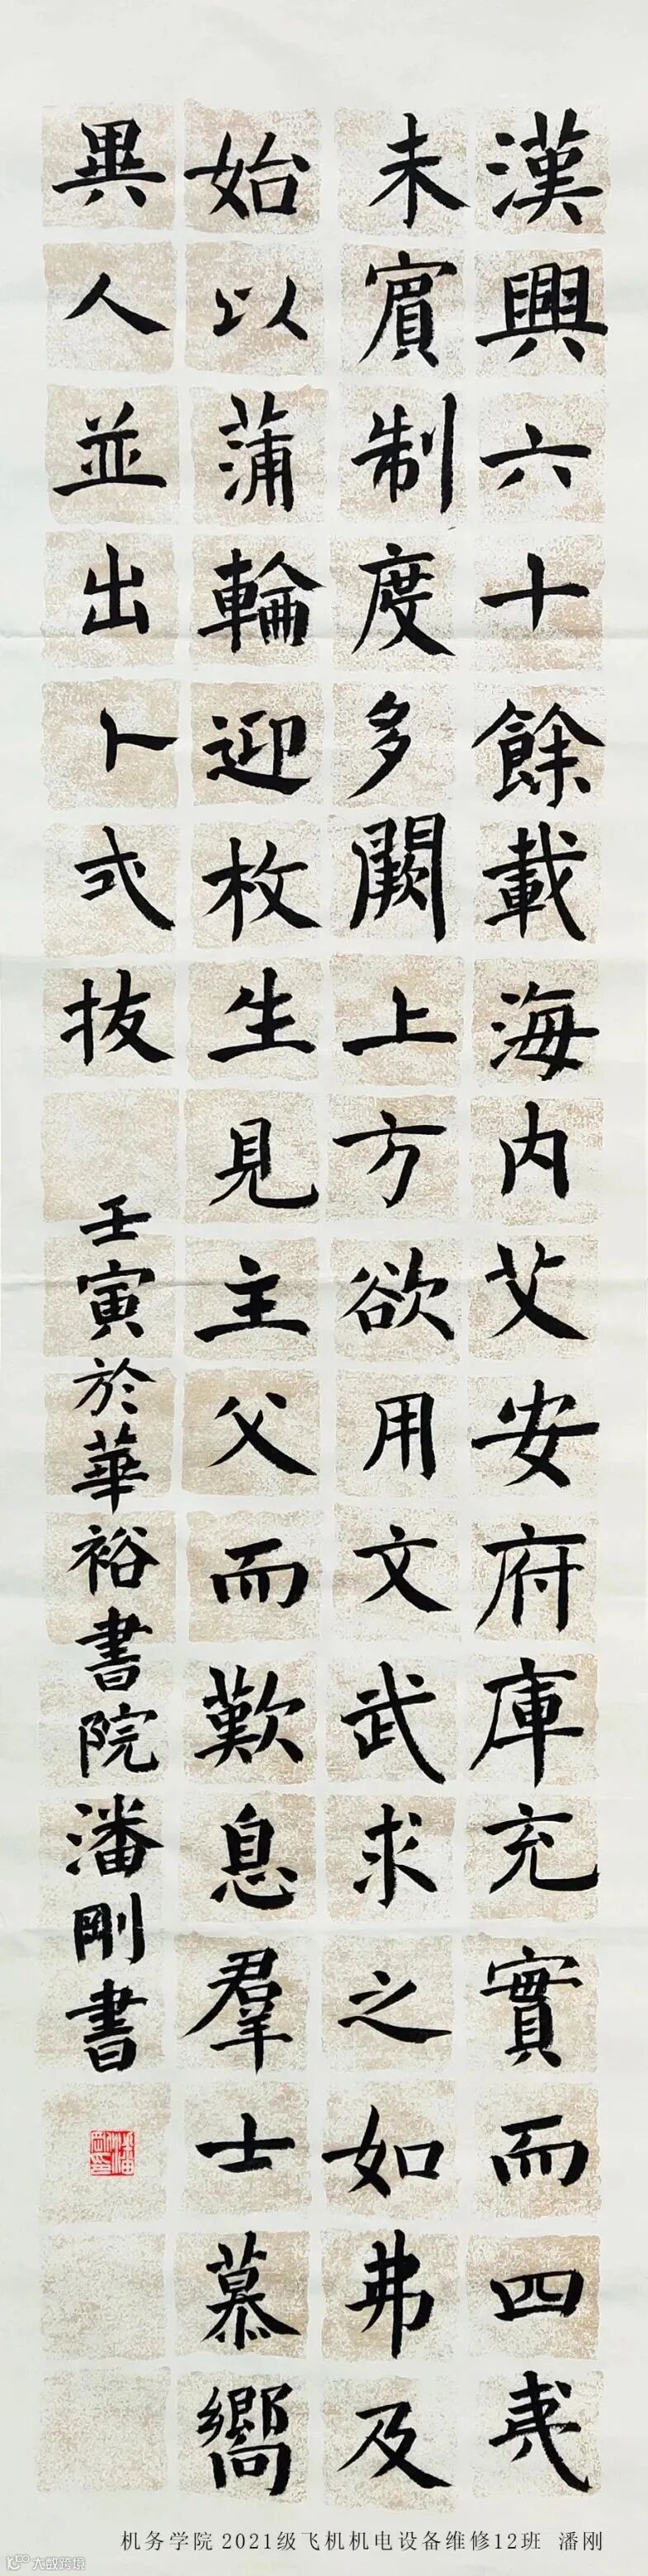 漢興六十餘載海内艾安府庫充實而四夷
未賓制度多闕上方欲用文武求之如弗及
始以蒲輪迎枚生見主父而歎息羣士慕嚮
異人並出卜式拔
壬寅於華裕書院潘剛書
机务学院 2021级飞机机电设备维修12班 潘刚
大数跨境